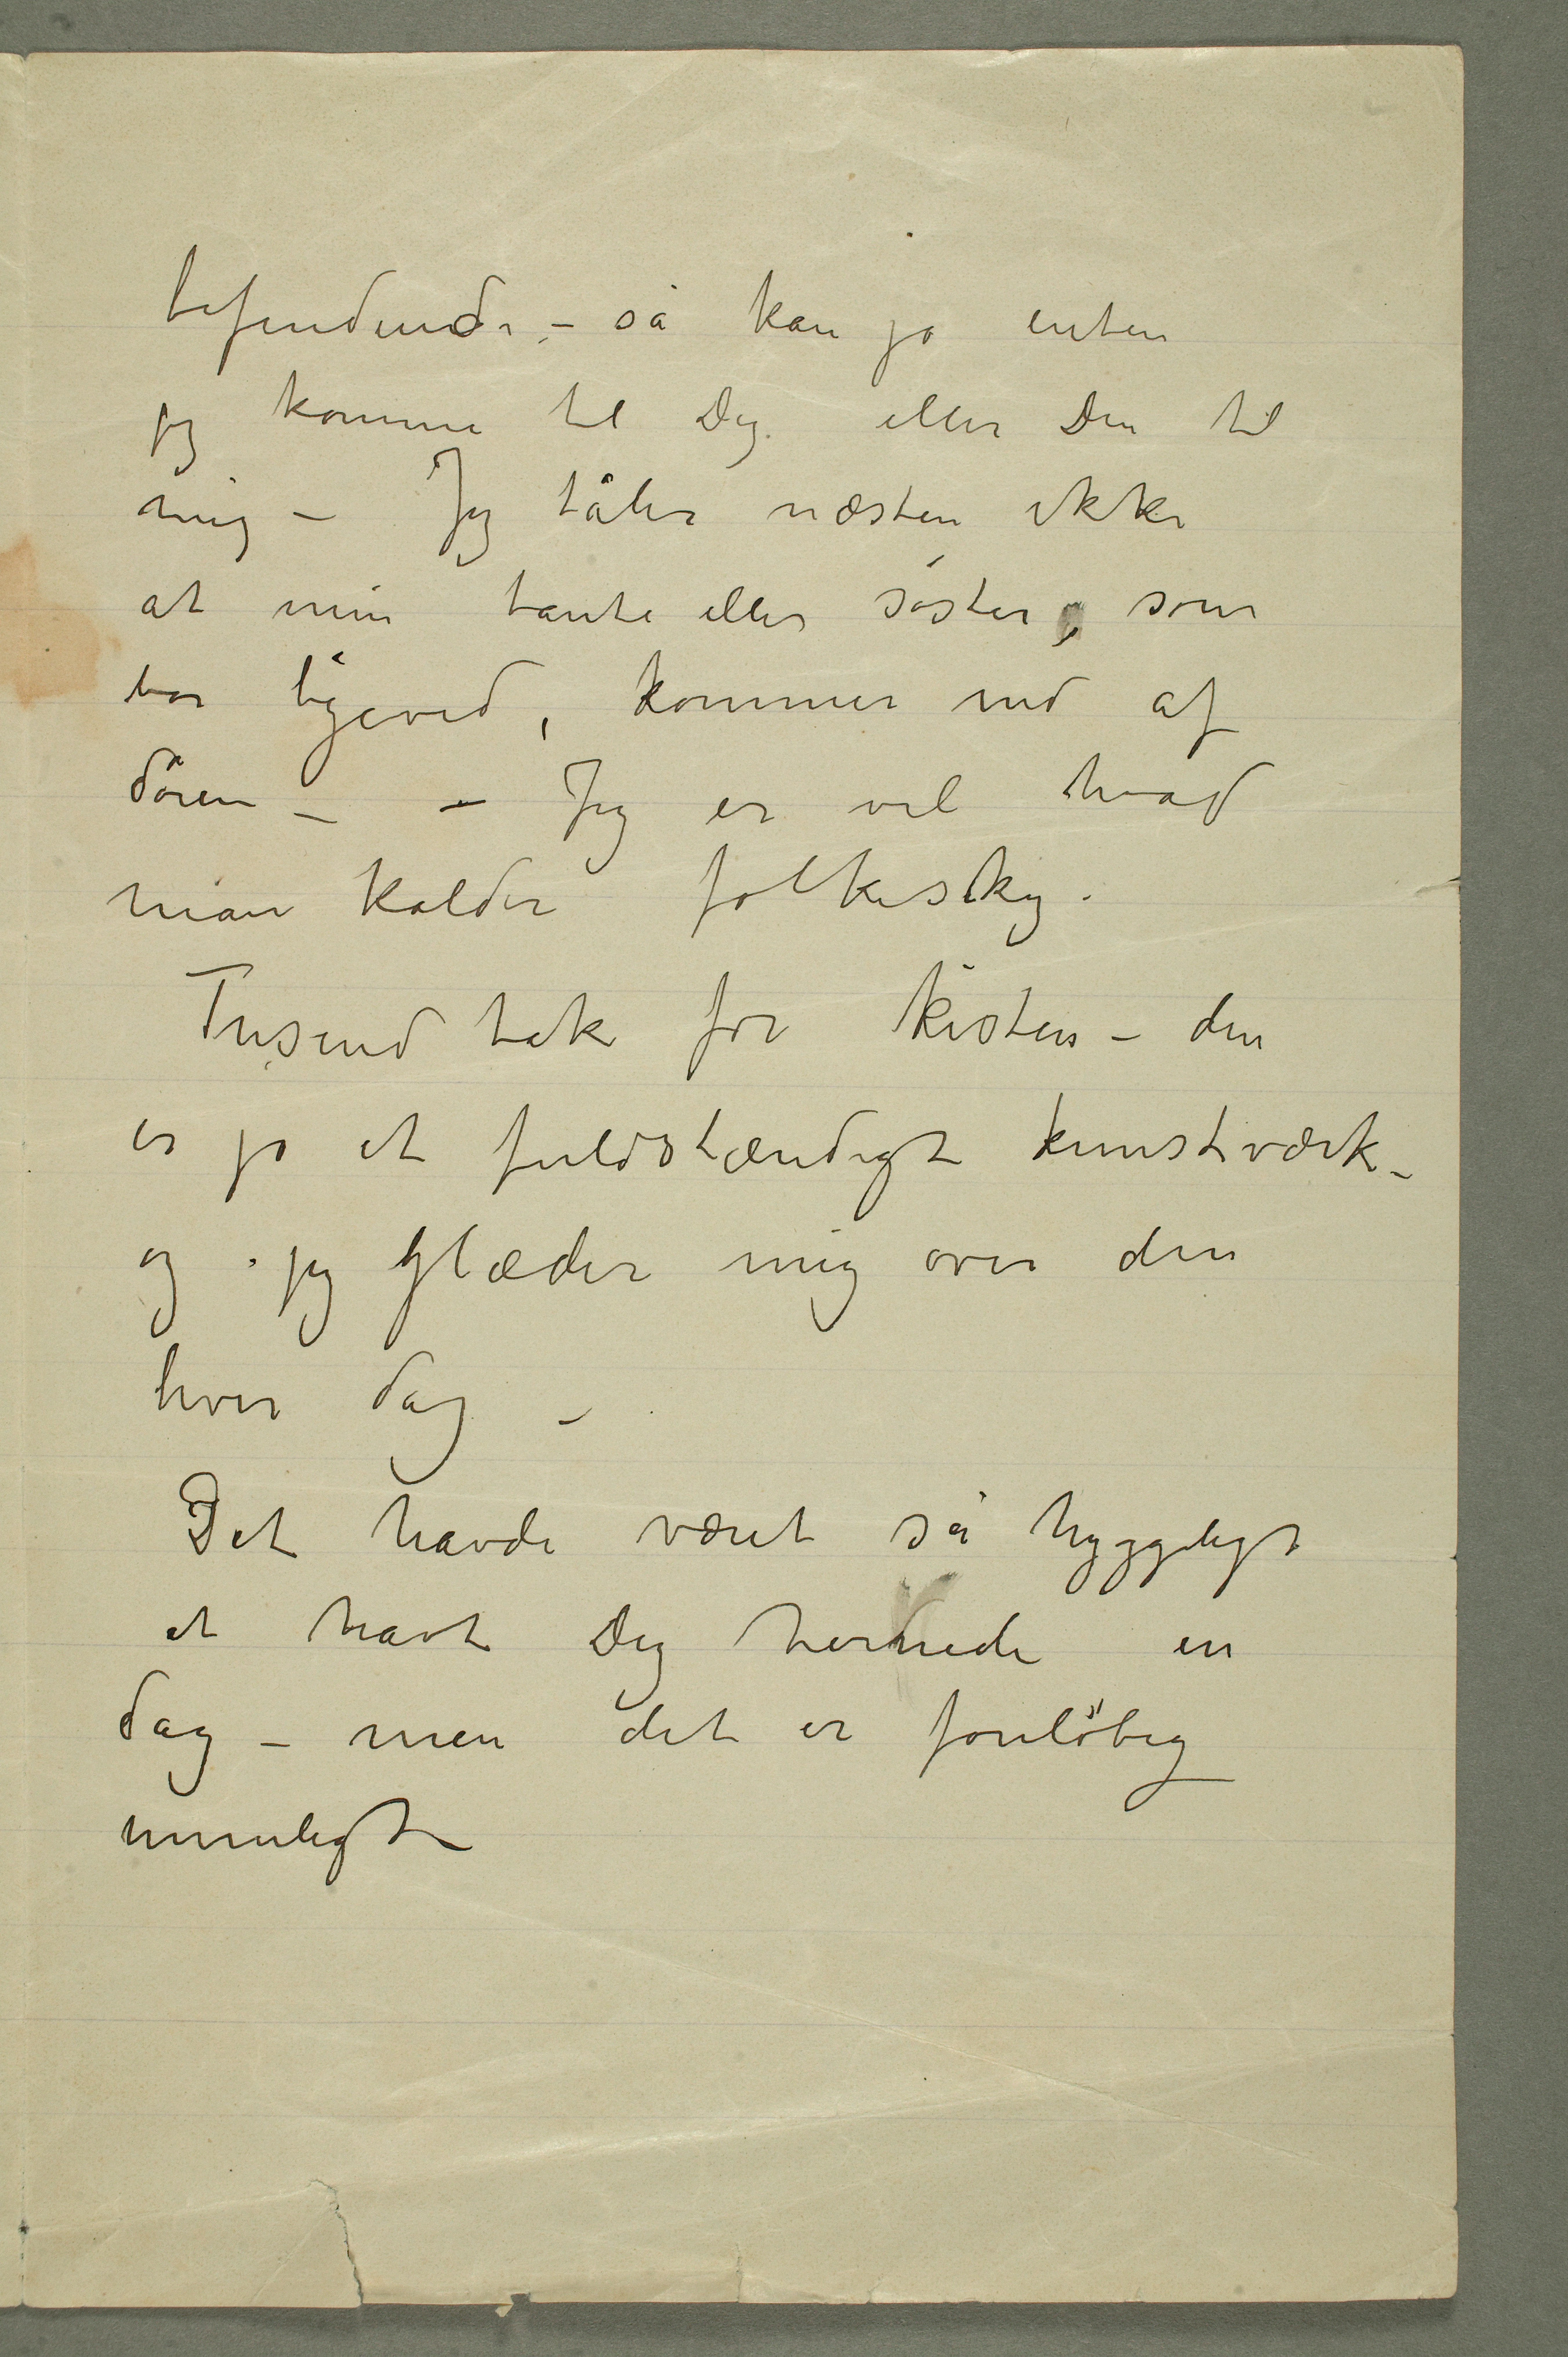 befindende, – så kan jo enten
jeg komme til Dig eller Du til
mig – Jeg tåler næsten ikke
at min tante eller søster, som
bor ligeved, kommer ind af
døren – – Jeg er vel hvad
man kalder folkesky.
Tusend tak for kisten – den
er jo et fuldstændigt kunstværk –
og jeg glæder mig over den
hver dag –
Det havde været så hyggeligt
at havt Dig hernede en
dag – men det er foreløbig
umuligt –